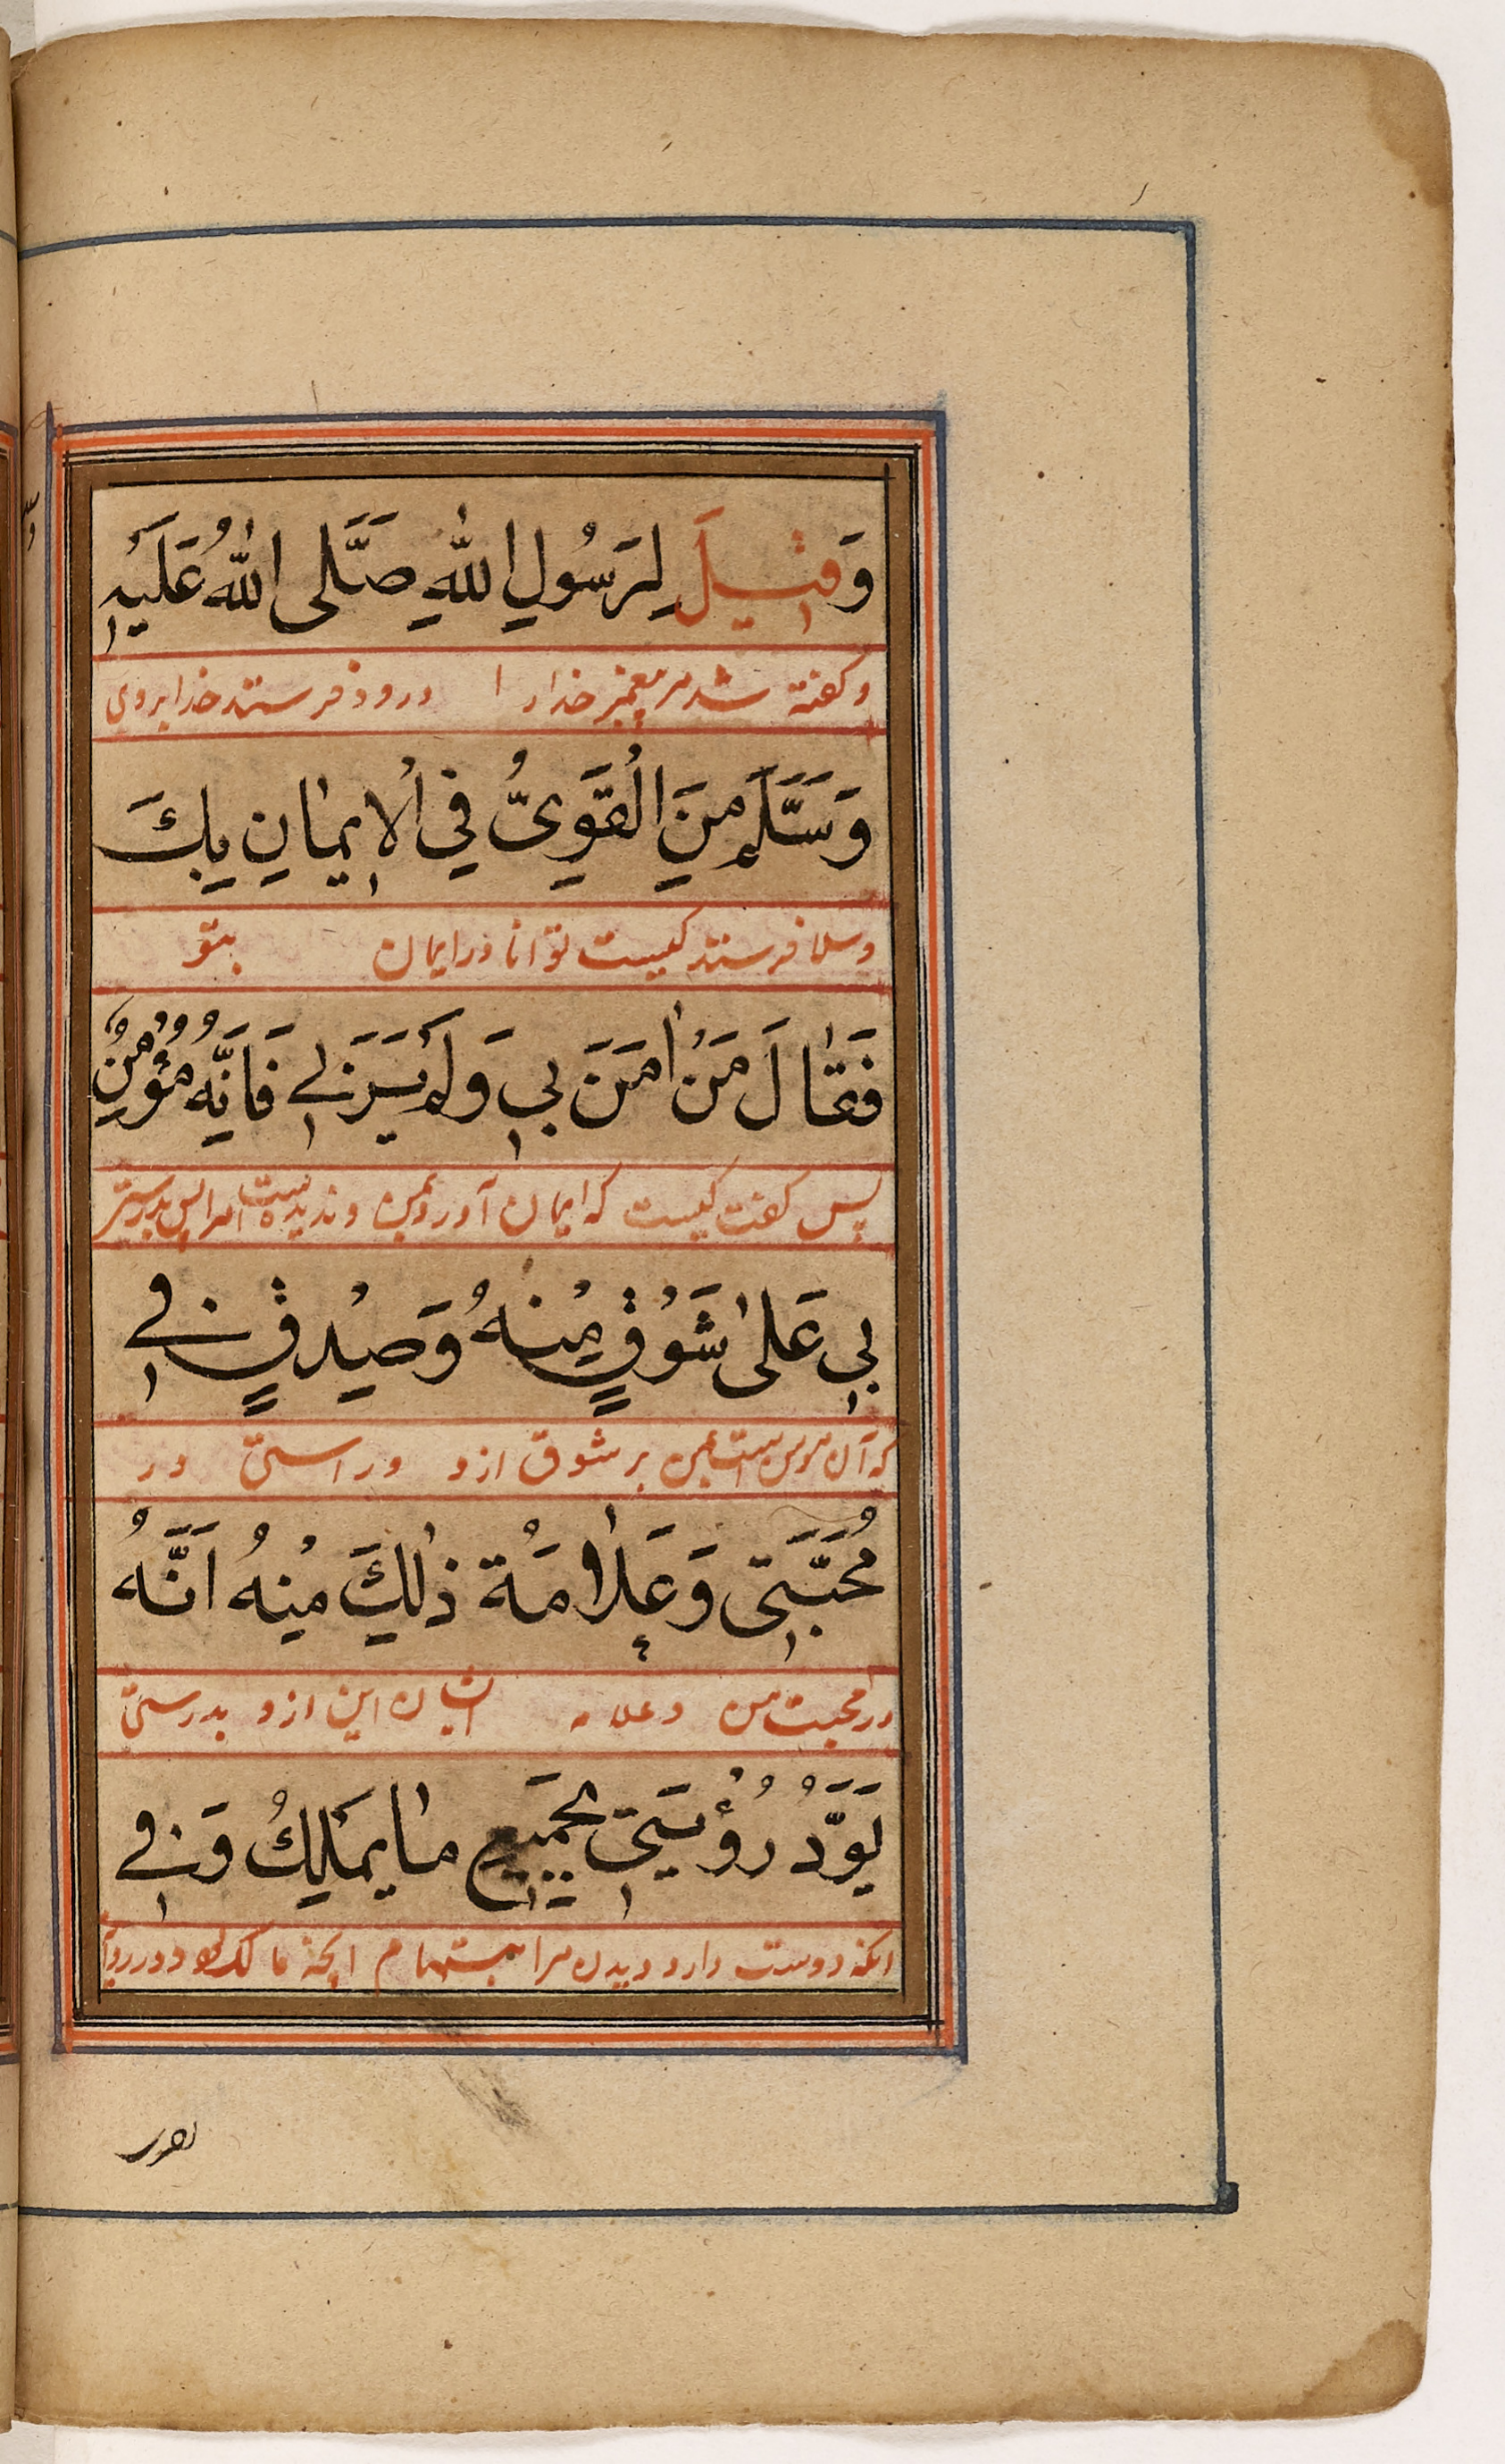 وَقِيلَ لِرَسُولِ اللّٰهِ صَلَّى اللّٰهُ عَلَيْهِ
وكفته شد مر پیغمبر خدار ا درود فرستد خدا بروی
وَسَلَّمَ مَنَ الْقَوِىُّ فِي الْاِيمَانِ بِكَ
وسلام فرستد کیست توانا در ایمان بتو
فَقَالَ مَنْ اٰمَنَ بِي وَلَمْ يَرَنِي فَاِنَّهُ مُؤْمِنٌ
پس کفت کیست که ایمان آورد بمن و ندیده است مرا پس بدرستی
بِي عَلٰى شَوْقٍ مِنْهُ وَصِدْقٍ فِي
که آن مومن است بمن بر شوق ازو وراستی در
مُحَبَّتِى وَعَلَامَةُ ذٰلِكَ مِنْهُ اَنَّهُ
در محبت من وعلامه نشان این ازو بدرستی
يَوَدُّ رُؤْيَتِي بِجَمِيعِ مَا يَمْلِكُ وَفِي
انکه دوست دارد دیدن مرا بتمام انچه مالک بود ودر